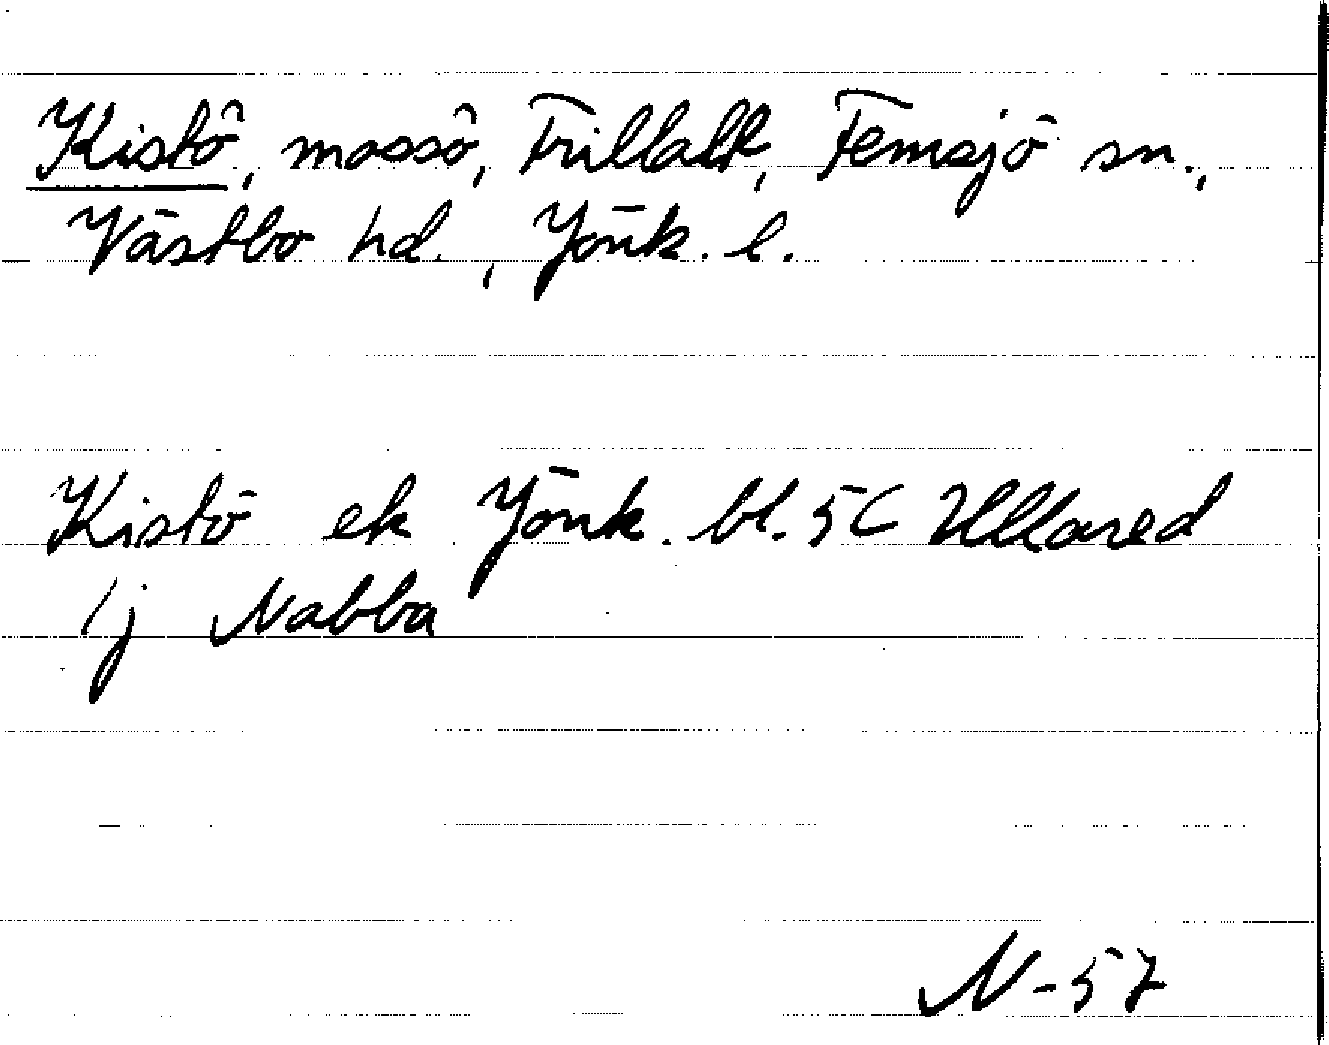 Kistö, mossö, Trillalt, Femsjö sn.,
Västbo hd., Jönk. l.
Kistö ek Jönk. bl. 5C Ullared
1j Nabba
N-57